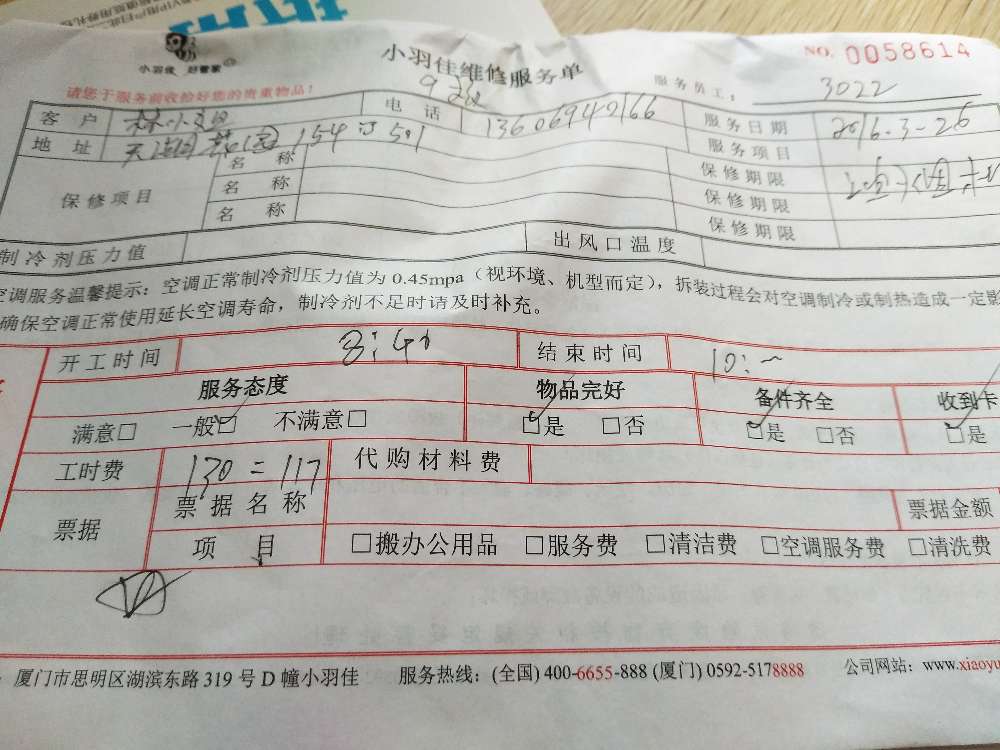 小羽佳 好管家
小羽佳维修服务单
NO. 0058614
请您于服务前收拾好您的贵重物品!
服务员工: 3022
客户 电话 13606940166 服务日期 2016.3-26
地址 154 501 服务项目
保修项目 名称 保修期限
名称 保修期限
名称 保修期限
制冷剂压力值 出风口温度
空调服务温馨提示:空调正常制冷剂压力值为0.45mpa(视环境、机型而定),拆装过程会对空调制冷或制热造成一定影
确保空调正常使用延长空调寿命,制冷剂不足时请及时补充。
开工时间 结束时间
服务态度 物品完好 备件齐全 收到卡
满意□ 一般□ 不满意□ □是 □否 □是 □否 □是
工时费 130=117 代购材料费
票据 票据名称 票据金额
项目 □搬办公用品 □服务费 □清洁费 □空调服务费 □清洗费
厦门市思明区湖滨东路319号D幢小羽佳 服务热线:(全国)400-6655-888 (厦门)0592-5178888 公司网站:www.xiaoyu